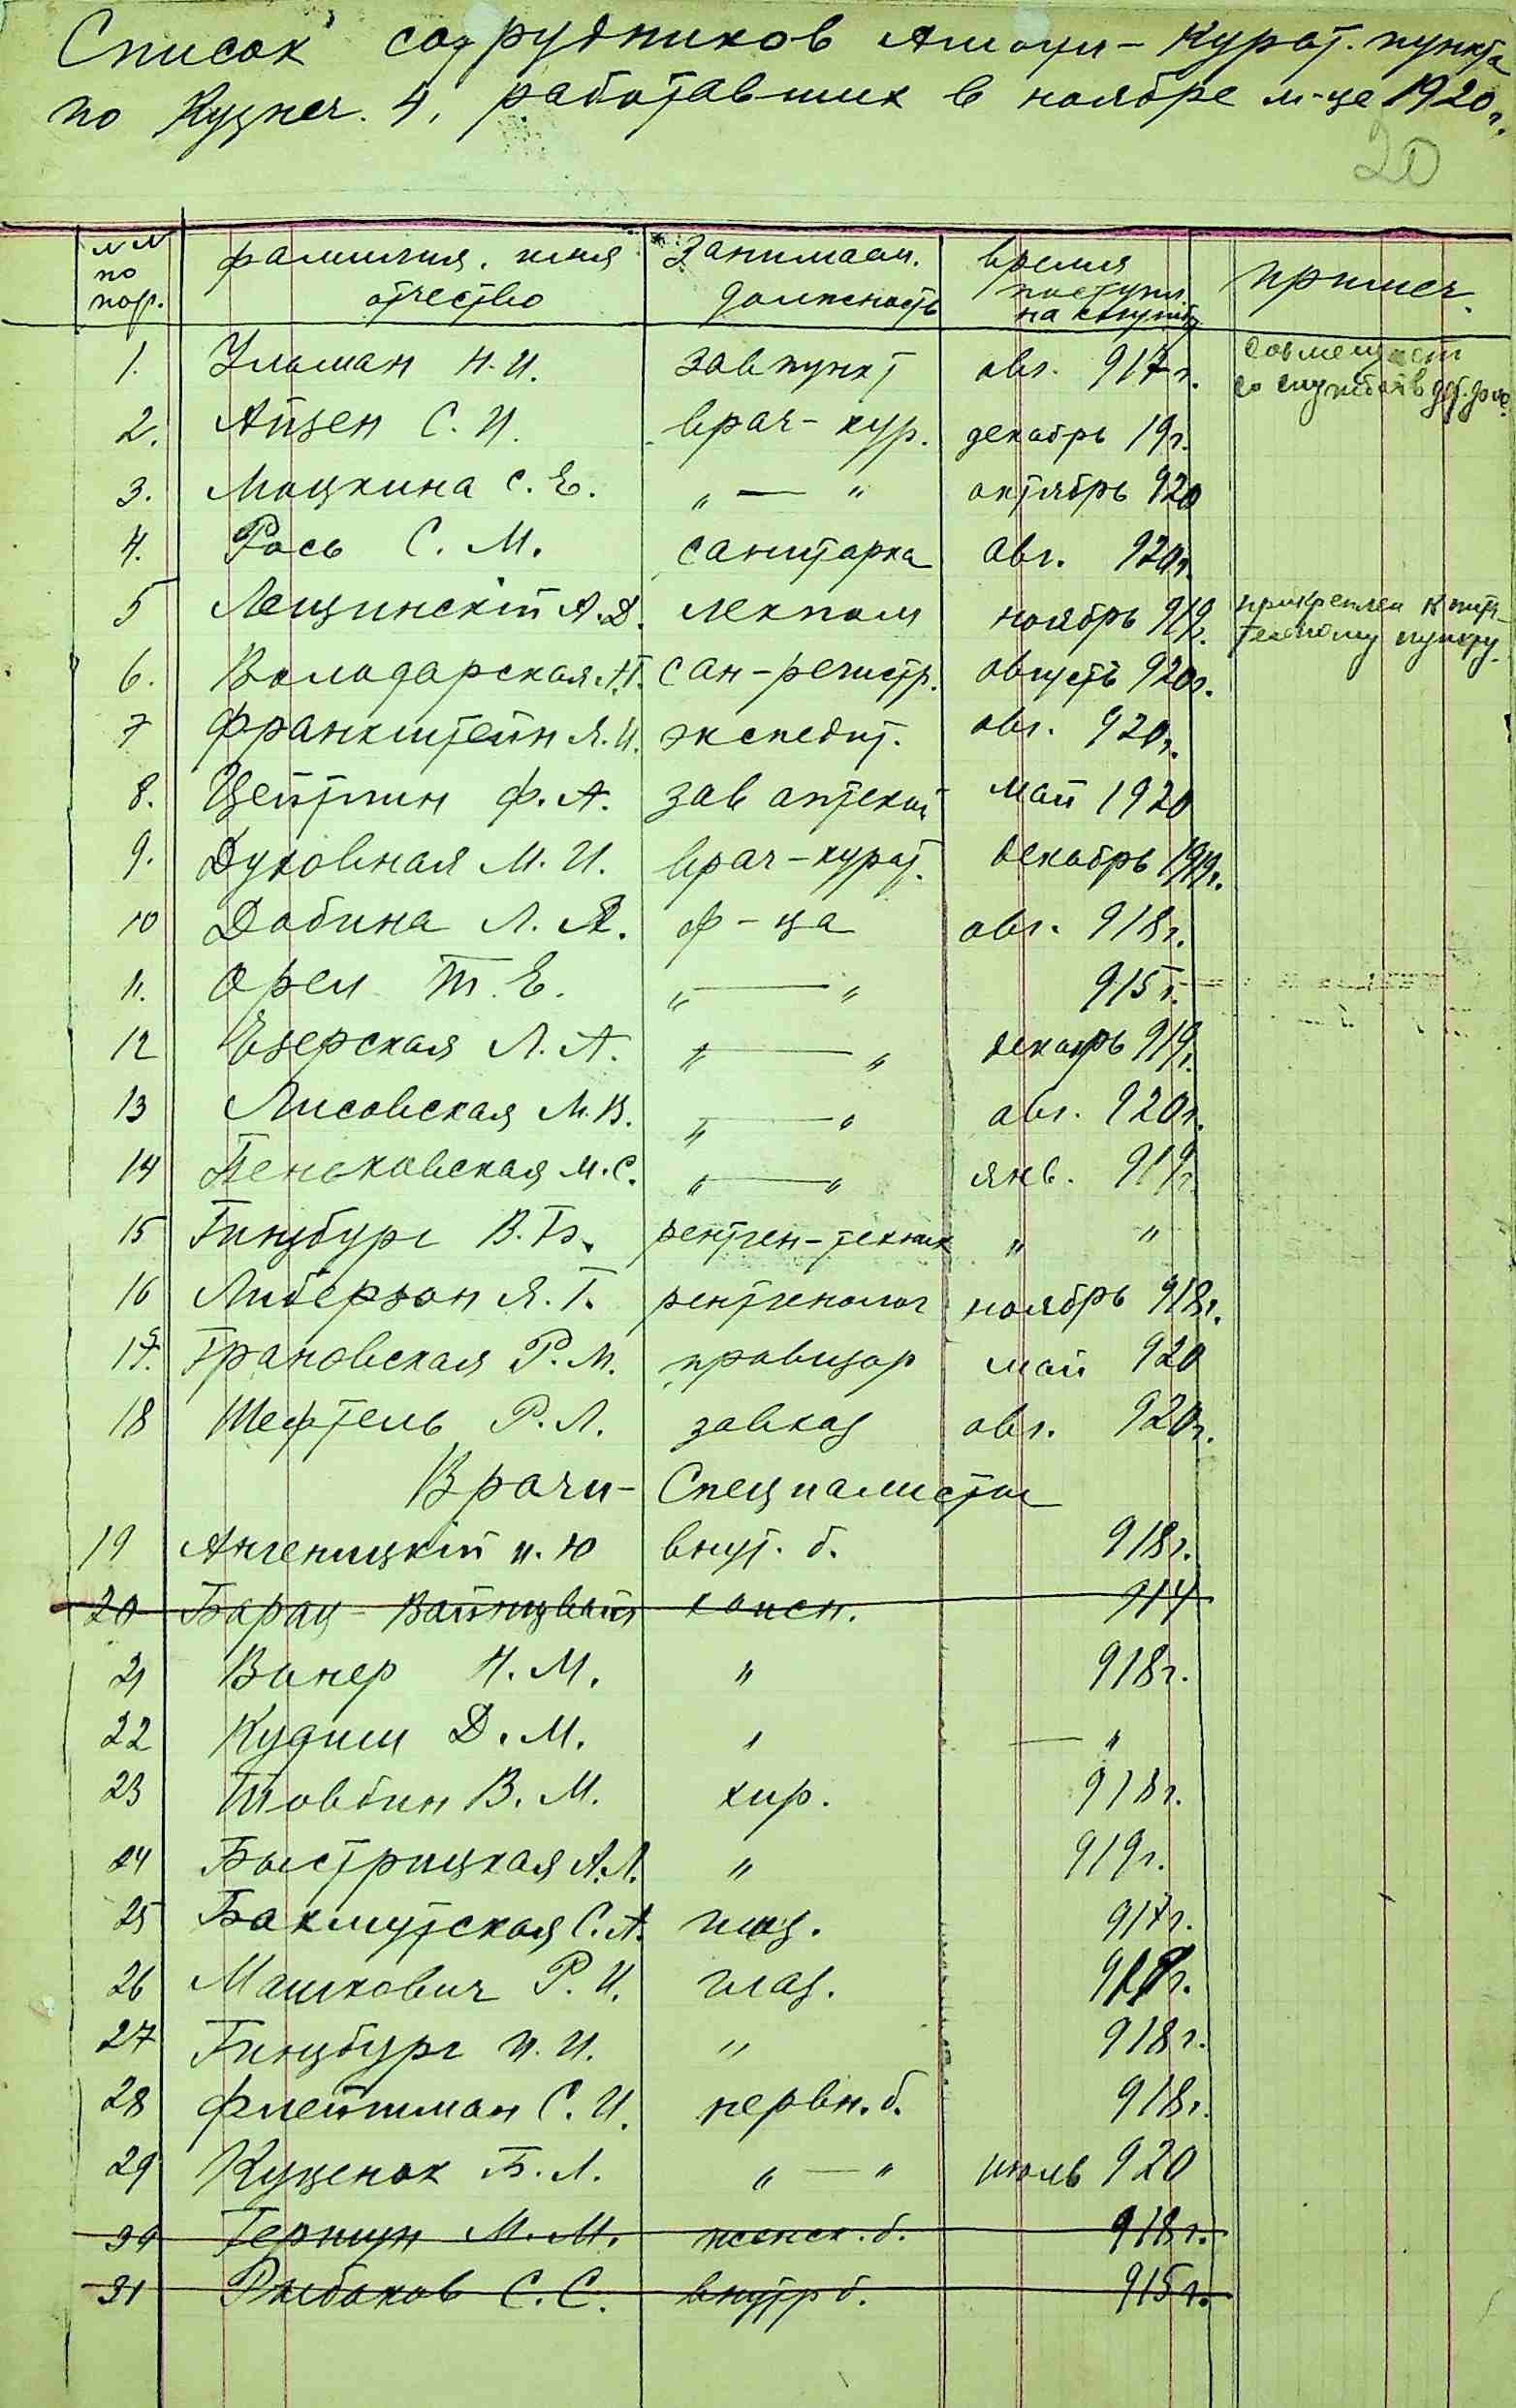 Список сотрудников Амбул- Курат. пункта
по Кузнеч. 4, работавших в ноябре м-це 1920 г.
20
№№ по пор. фамилия, имя отчество Занимаем. должность время поступл. на службу примеч.
1. Ульман Н. И. завпункт авг. 917 г. совмещает со службой в
2. Айзен С. И. врач-кур. декабрь 19 г.
3. Мацкина С. Е. „ — “ октябрь 920
4. Рось С. М. санитарка авг. 920 г.
5 Лещинскій А. Д. лекпом ноябрь 919 г. прикреплен к пита-тельному пункту
6. Володарская А. Г. сан-регистр. августъ 920 г.
7 Франкштейн Я. И. экспедит. авг. 920 г.
8. Цейтлин Ф. А. зав аптекой май 1920
9. Духовная М. И. врач-курат. декабрь 1919 г.
10 Добина Л. Я. ф-ца авг. 918 г.
11. Орел Т. Е. „ — “ 915 г.
12 Езерская Л. А. „ — “ декабрь 919 г.
13 Лисовская М. В. „ — “ авг. 920 г.
14 Пеньковская М. С. „ — “ янв. 919 г.
15 Гинзбург В. Б. рентген-техник „ “
16 Либерзон Я. Г. рентгенолог ноябрь 918 г.
17. Грановская Р. М. провизор май 920
18 Шефтель Р. Л. завхоз авг. 920 г.
Врачи - Специалисты
19 Ангеницкій И. Ю внут. б. 918 г.
20 Барац - Вайнцвайг кожн. 914
21 Винер Н. М. “ 918 г.
22 Кудиш Д. М. “ — “
23 Товбин В. М. хир. 918 г.
24 Быстрицкая А. Л. “ 919 г.
25 Бахмутская С. А. глаз. 917 г.
26 Машкович Р. И. глаз. г.
27 Гинзбург И. И. “ 918 г.
28 Флейтман С. И. нервн. б. 918 г.
29 Куценок Б. Л. „ — “ июль 920
30 Герцун М. М. женск. б. 918 г.
31 Рыбаков С. С. внутр б. 915 г.